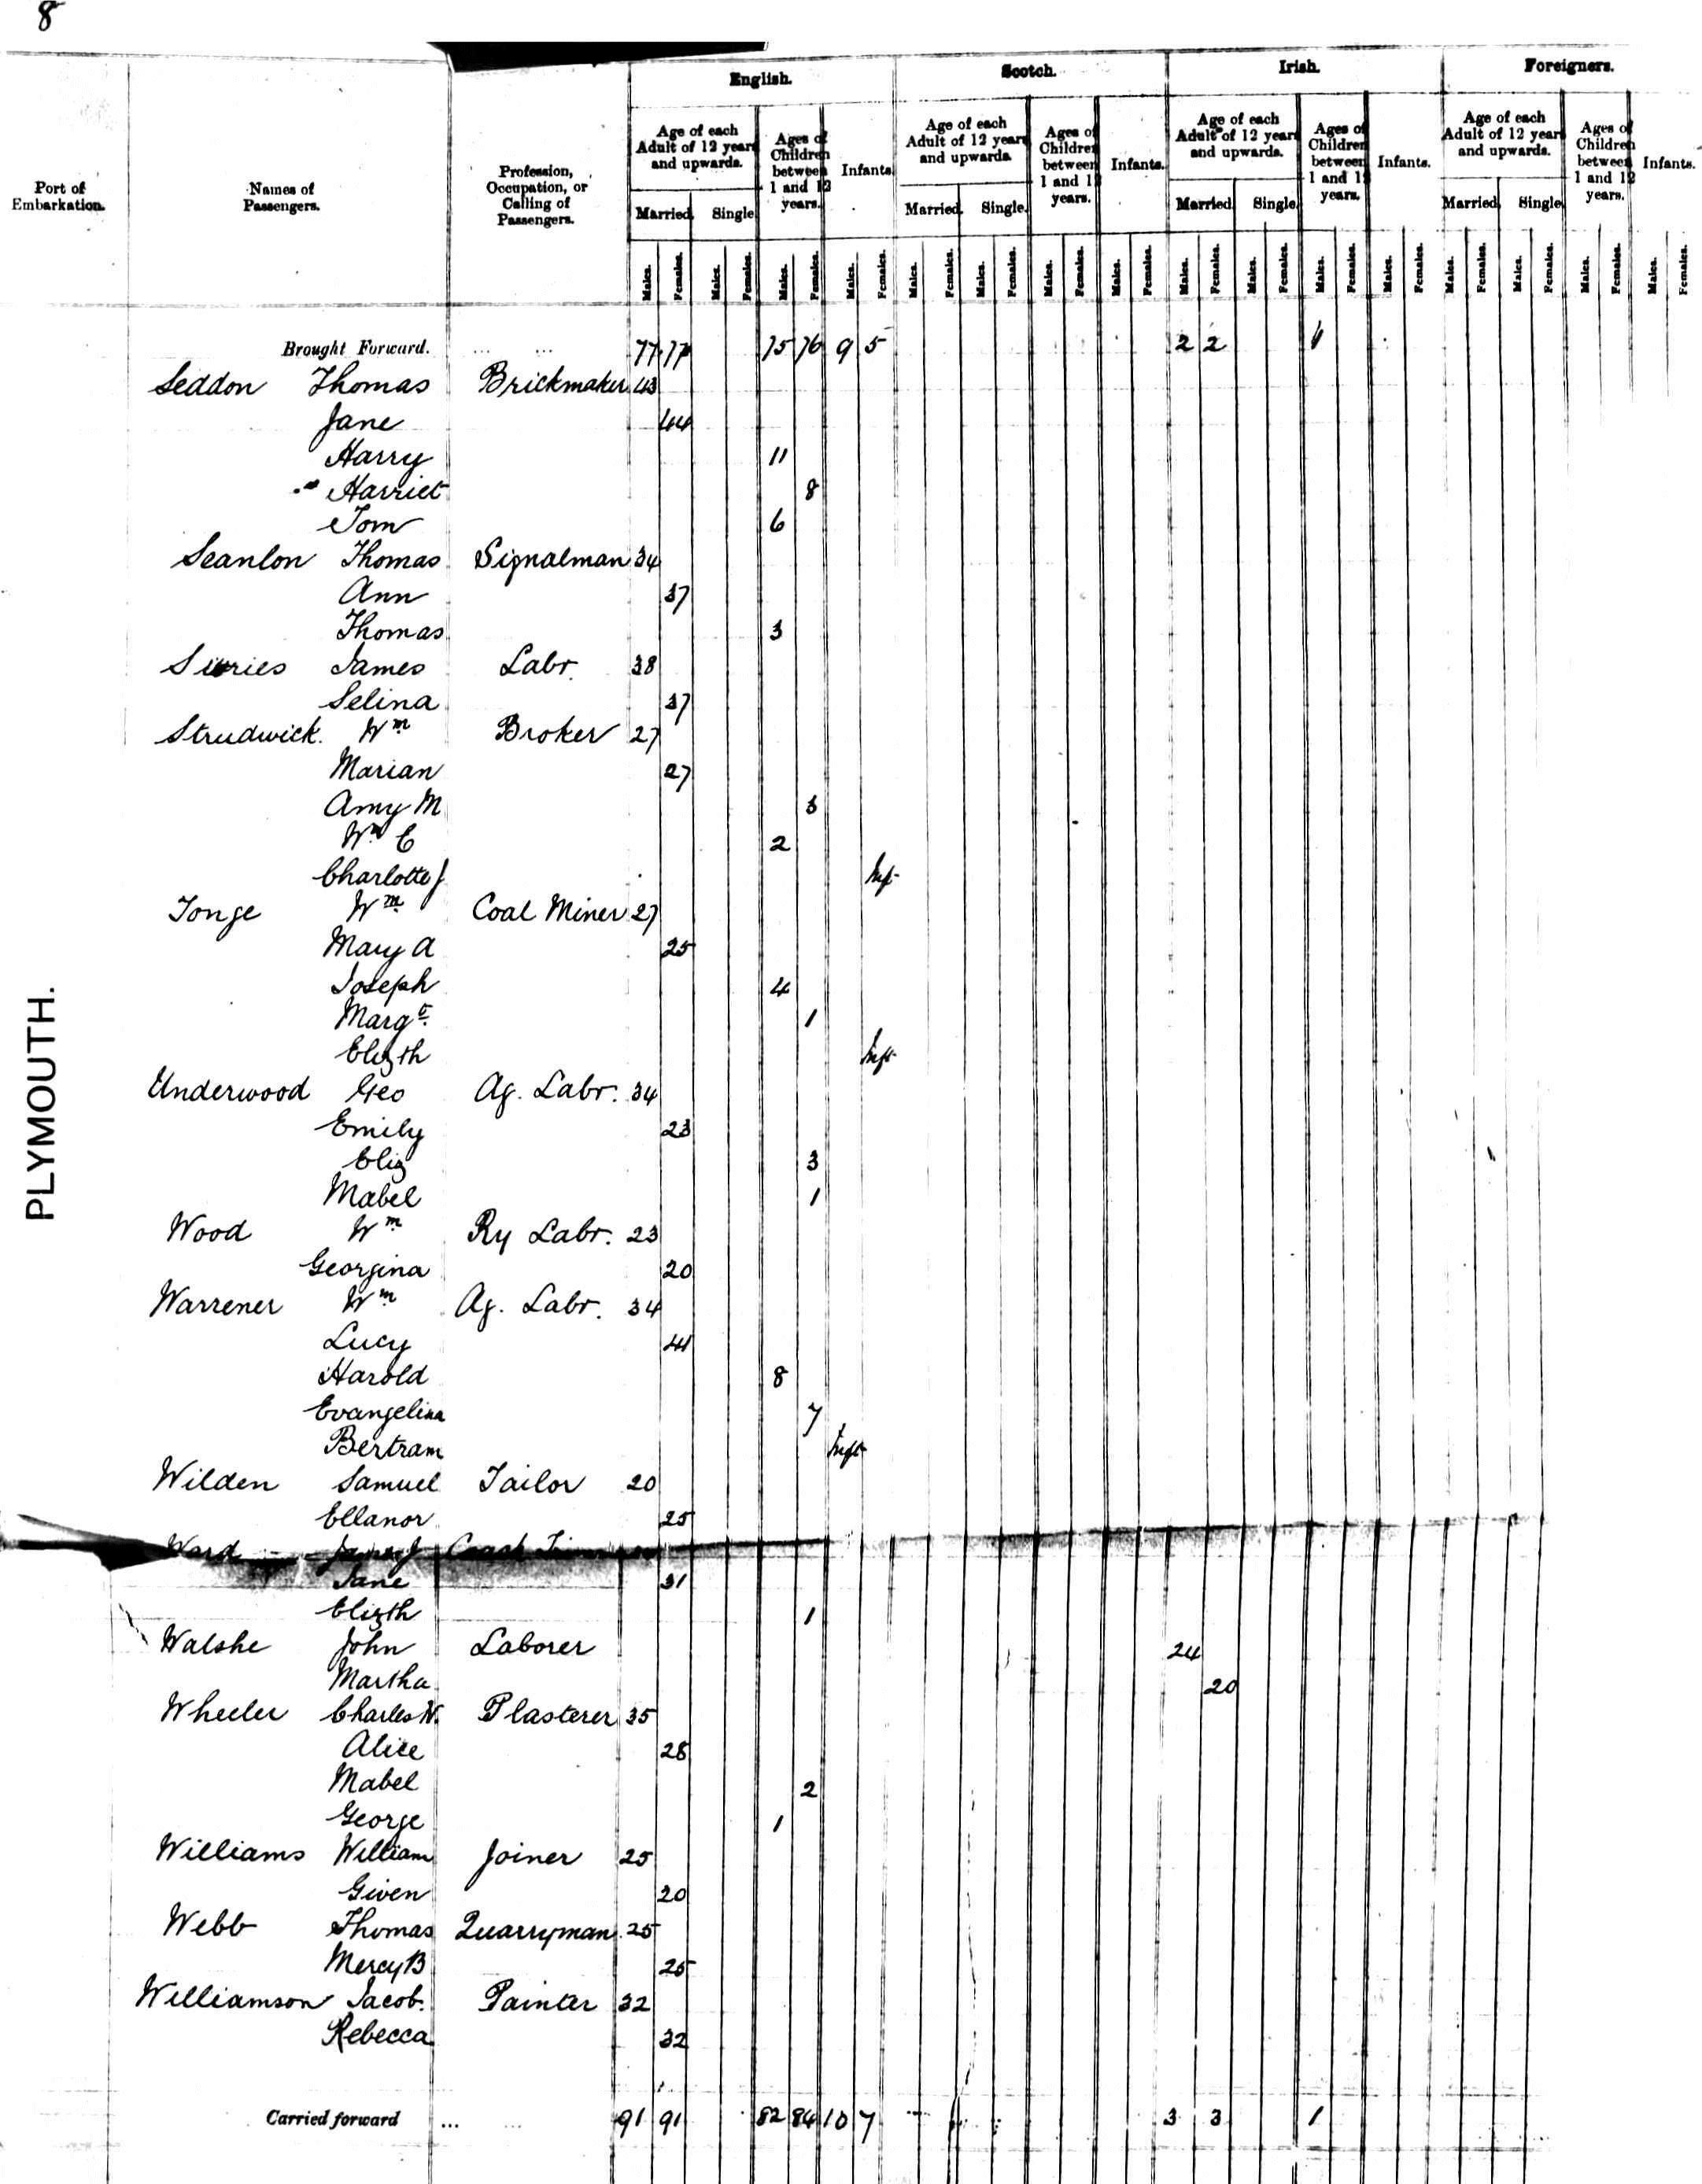 8
English. Scotch. Irish. Foreigners.
Port of Embarkation. Names of Passengers. Profession, Occupation, or Calling of Passengers. Age of each Adult of 12 years and upwards. Ages of Children between 1 and 12 years. Infants. Age of each Adult of 12 years and upwards. Ages of Children between 1 and 12 years. Infants. Age of each Adult of 12 years and upwards. Ages of Children between 1 and 12 years. Infants. Age of each Adult of 12 years and upwards. Ages of Children between 1 and 12 years. Infants.
Married. Single. Married. Single. Married. Single. Married. Single.
Males. Females. Males. Females. Males. Females. Males. Females. Males. Females. Males. Females. Males. Females. Males. Females. Males. Females. Males. Females. Males. Females. Males. Females. Males. Females. Males. Females. Males. Females. Males. Females.
Brought Forward. ... ... 77 77 75 76 9 5 2 2 1
Seddon Thomas Brickmaker 43
Jane 44
Harry 11
Harriet 8
Tom 6
Scanlon Thomas Signalman 34
Ann 37
Thomas 3
James Labr. 38
Selina 37
Strudwick. Wm Broker 27
Marian 27
Amy M 3
Wm C 2
Charlotte J Inft
Tonge Wm Coal Miner 27
Mary A 25
Joseph 4
Margt. 1
Elizth Inft
Underwood Geo Ag. Labr. 34
Emily 23
Eliz 3
Mabel 1
Wood Wm Ry Labr. 23
Georgina 20
Warrener Wm Ag. Labr. 34
Lucy 41
Harold 8
Evangelina 7
Bertram Inft
Wilden Samuel Tailor 20
Ellanor 25
Ward James J Coach
Jane 31
Elizth 1
Walshe John Laborer 24
Martha 20
Wheeler Charles W. Plasterer 35
Alice 28
Mabel 2
George 1
Williams William Joiner 25
Given 20
Webb Thomas Quarryman 25
Mercy B 25
Williamson Jacob. Painter 32
Rebecca 32
Carried forward ... ... 91 91 82 84 10 7 3 3 1
PLYMOUTH.